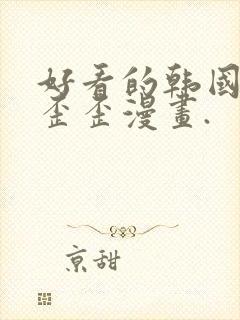 好看的韩国
歪歪漫畫.
京甜